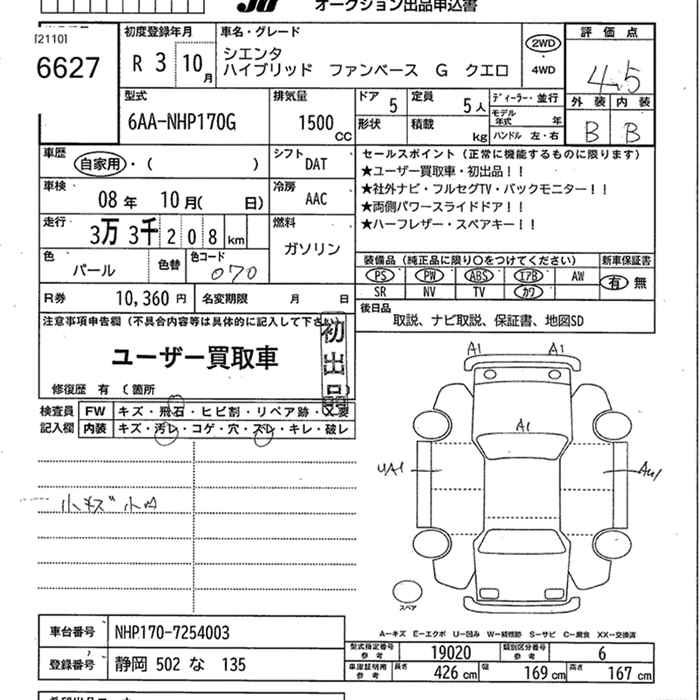 オークション出品申込書
[2110]
6627
初度登録年月
R 3 10 月
車名・グレード
シエンタ
ハイブリッド ファンベース G クエロ
2WD
4WD
評価点
4.5
外装 内装
B B
型式
6AA-NHP170G
排気量
1500 CC
ドア 5
定員 5人
形状
積載 kg
ディーラー・並行
モデル年式 年
ハンドル 左・右
車歴
自家用・( )
シフト
DAT
車検
08年 10月( 日)
冷房
AAC
走行
3万 3千 2 0 8 km
燃料
ガソリン
色
パール
色替
色コード
070
R券 10,360円
名変期限 月 日
セールスポイント(正常に機能するものに限ります)
★ユーザー買取車・初出品!!
★社外ナビ・フルセグTV・バックモニター!!
★両側パワースライドドア!!
★ハーフレザー・スペアキー!!
装備品(純正品に限り○をつけてください)
新車保証書
PS PW ABS エアB AW
SR NV TV カワ
有 無
後日品
取説、ナビ取説、保証書、地図SD
注意事項申告欄(不具合内容等は具体的に記入して下さい)
ユーザー買取車
初出品
修復歴 有 (箇所
検査員
記入欄
FW キズ・飛石・ヒビ割・リペア跡・X要
内装 キズ・汚レ・コゲ・穴・スレ・キレ・破レ
小キズ 小凹
A1 A1
A1
UA1
AU1
スペア
A…キズ E…エクボ U…凹み W…補修跡 S…サビ C…腐食 XX…交換済
車台番号 NHP170-7254003
登録番号 静岡 502 な 135
型式指定番号 参考 19020
類別区分番号 参考 6
車庫証明用 参考
長さ 426 cm
幅 169 cm
高さ 167 cm